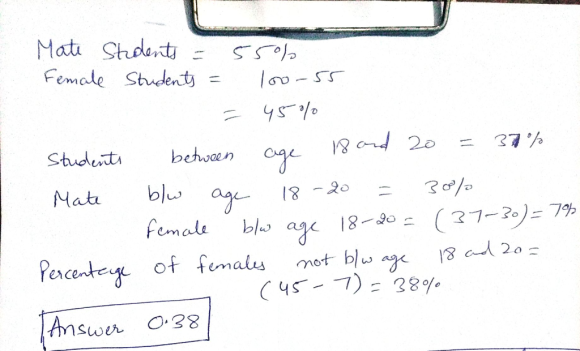 Male Students = 55%
Female Students = 100-55
= 45%
Students between age 18 and 20 = 37%
Male b/w age 18-20 = 30%
female b/w age 18-20 = (37-30)= 7%
Percentage of females not b/w age 18 and 20 =
(45-7) = 38%
Answer 0.38